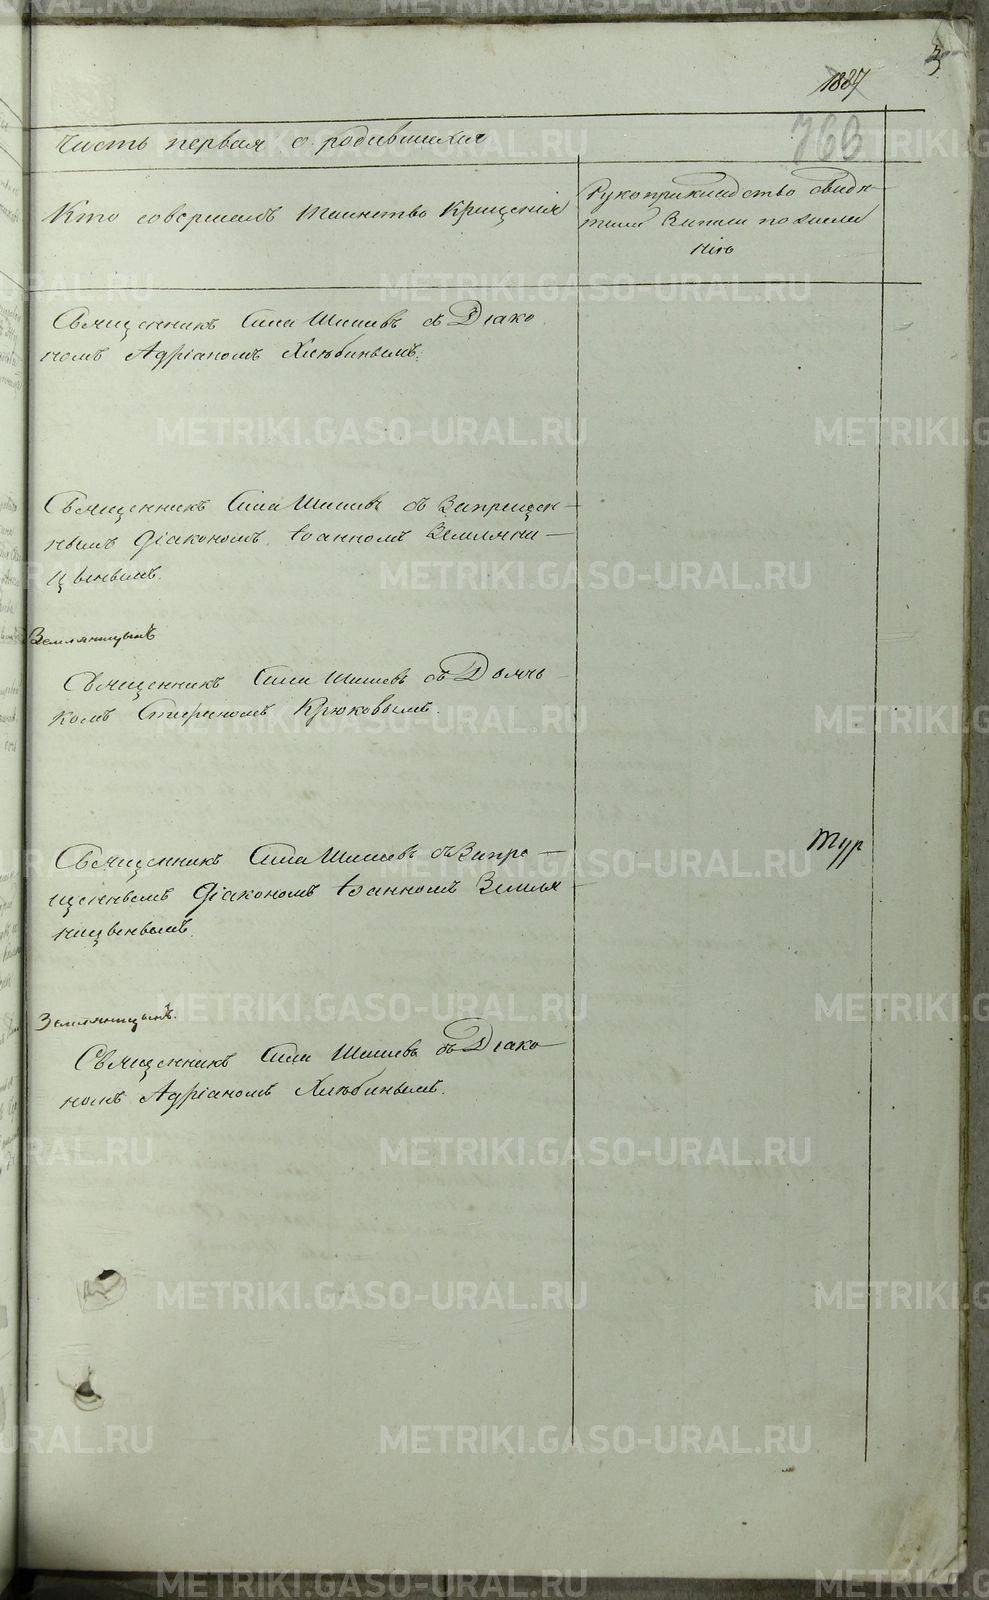 3
1887
766
Часть первая о родившихся
Кто совершалъ таинство крещенія
Рукоприкладство свидѣ-
телей записи по желанiю
Священникъ Сила Шишевъ съ Діако
номъ Адріаномъ Хлѣбинымъ.
Священникъ Сила Шишевъ съ Запрещен-
нымъ Діакономъ Іоанномъ Земляни-
цынымъ.
Земляницынъ
Священникъ Сила Шишевъ съ Дьячь
комъ Стефаномъ Крюковымъ.
Священникъ Сила Шишевъ съ Запре-
щеннымъ Діакономъ Іоанномъ Земля-
ницынымъ.
Тур
Земляницынъ.
Священникъ Сила Шишевъ съ Діако
номъ Адріаномъ Хлѣбинымъ.
METRIKI.GASO-URAL.RU